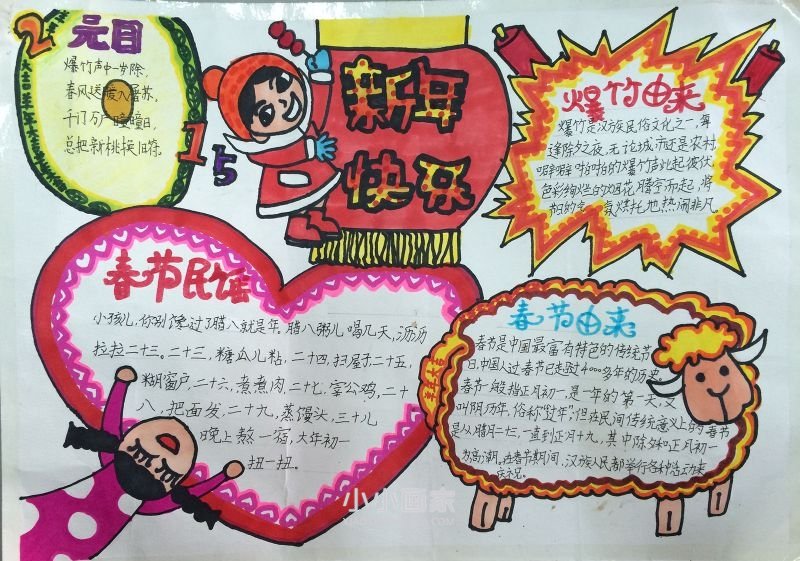 2
元日
爆竹声中一岁除,
春风送暖入屠苏.
千门万户曈曈日,
总把新桃换旧符.
1
5
新年
快乐
爆竹由来
爆竹是汉族民俗文化之一,每
逢除夕之夜,无论城市还是农村
噼噼啪啪的爆竹声此起彼伏
色彩绚烂的烟花腾空而起,将
节日的气氛烘托地热闹非凡.
春节民谣
小孩儿,你别馋,过了腊八就是年.腊八粥儿喝几天,沥沥
拉拉二十三.二十三,糖瓜儿粘,二十四,扫屋子二十五,
糊窗户,二十六,煮煮肉,二十七,宰公鸡,二十
八,把面发,二十九,蒸馒头,三十儿
晚上熬一宿,大年初一
扭一扭.
春节由来
羊年大吉
春节是中国最富有特色的传统节
日,中国人过春节已走过4000多年的历史.
春节一般指正月初一,是一年的第一天,又
叫阴历年,俗称"过年",但在民间传统意义上的春节
是从腊月二十三,一直到正月十九,其中除夕和正月初一
为高潮.在春节期间,汉族人民都举行各种活动来
庆祝.
小小画家